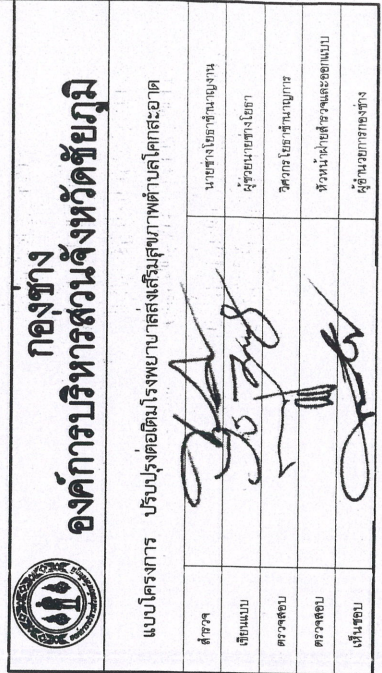 กองช่าง
องค์การบริหารส่วนจังหวัดชัยภูมิ
แบบโครงการ ปรับปรุงต่อเติมโรงพยาบาลส่งเสริมสุขภาพตำบลโคกสะอาด
สำรวจ นายช่างโยธาชำนาญงาน
เขียนแบบ ผู้ช่วยนายช่างโยธา
ตรวจสอบ วิศวกรโยธาชำนาญการ
ตรวจสอบ หัวหน้าฝ่ายสำรวจและออกแบบ
เห็นชอบ ผู้อำนวยการกองช่าง